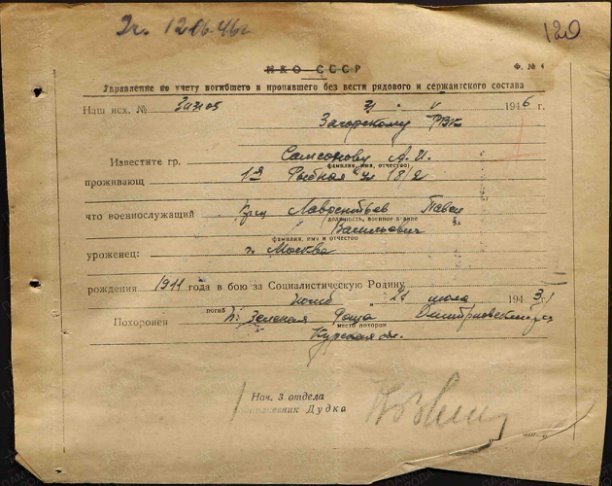 12.06.46г
120
НКО СССР
Ф. № 4
Управление по учету погибшего и пропавшего без вести рядового и сержантского состава
Наш исх. № 194 6 г.
Загорскому РВК
Известите гр. Самсонову А.И.
фамилия, имя, отчество)
проживающ 18/2
что военнослужащий Кр-ц Лаврентьев Павел
должность, военное звание
Васильевич
фамилия, имя и отчество
уроженец: г. Москва
рождения 1911 года в бою за Социалистическую Родину
погиб 21 июля 194 3
погиб
Похоронен Зеленая Роща
место похорон
Курская
Нач. 3 отдела
Дудка